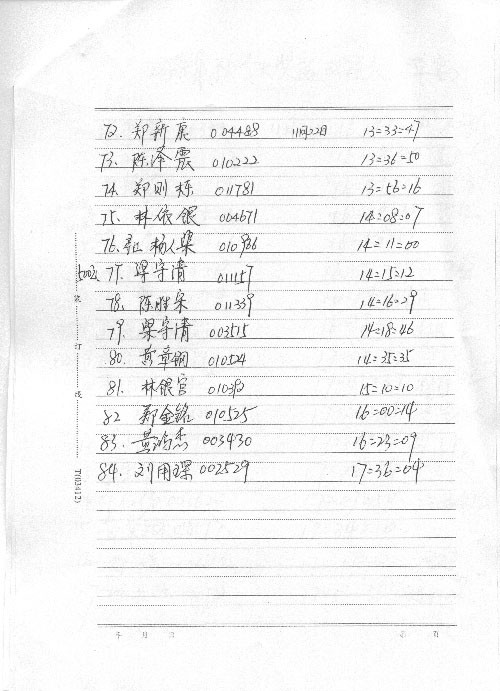 72. 郑新展 004488 11月22日 13=33=47
73、陈泽震 010222 13=36=50
74. 郑则栋 011781 13=56=16
75. 林依银 004671 14=08=07
76. 杨人梁 14=11=00
77. 梁守清 01157 14=15=12
78. 陈胜 011339 14=16=29
79. 梁守清 003515 14=18=46
80. 黄章钢 010524 14=35=35
81. 林银官 15=10=10
82 郑金铭 010525 16=00=14
83. 黄鸿杰 003430 16=23=09
84. 刘用琛 002529 17=36=04
装
订
线
T(03412)
年 月 日 第 页